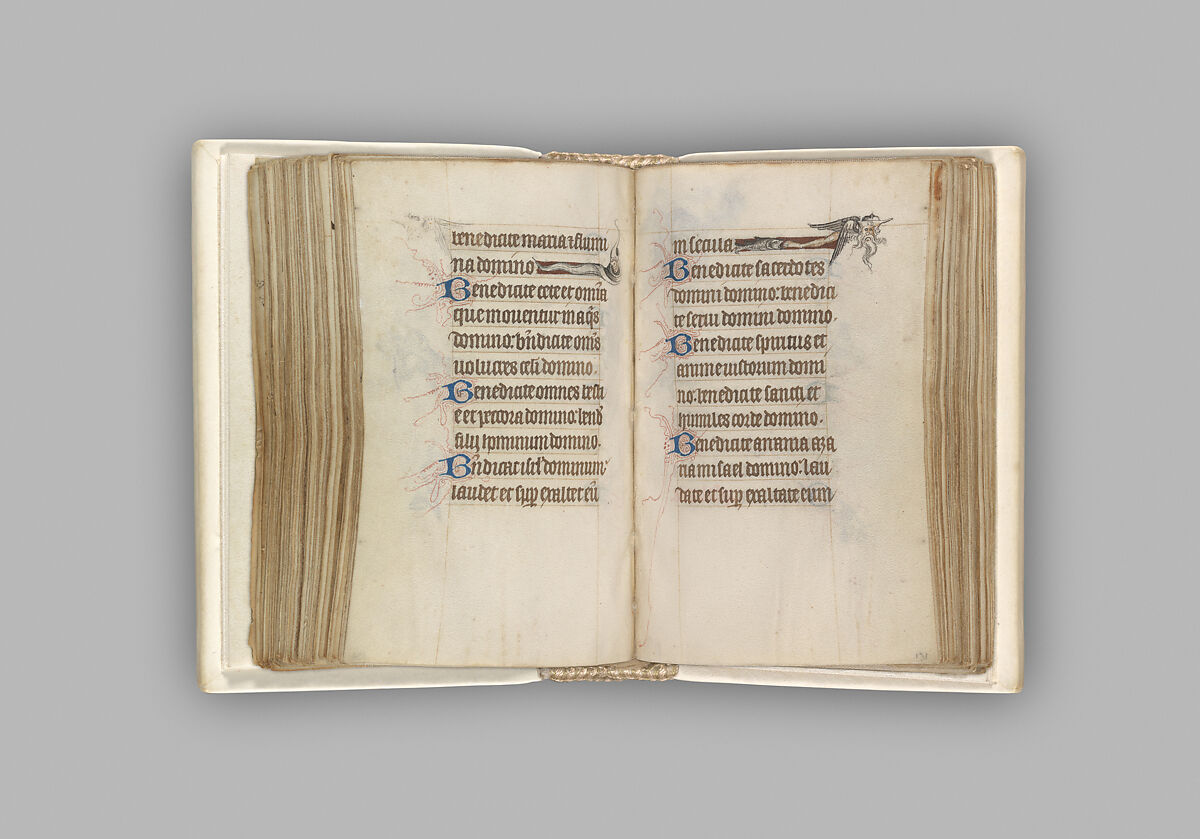 benedicite maria ⁊ flumi
na domino
Benedicite cete et omia
que mouentur in aqis
domino: bndicite oms
uolucres celi domino.
Benedicite omnes besti
e et pecora domino: bend
filij hominum domino.
Bndicat isrl dominum:
laudet et sup exaltet eu
in secula
Benedicite sacerdotes
domini domino: benedici
te serui domini domino.
Benedicite spiritus et
anime iustorum domi
no: benedicite sancti et
humiles corde domino.
Benedicite anania aza
ria misael domino: lau
date et sup exaltate eum
171